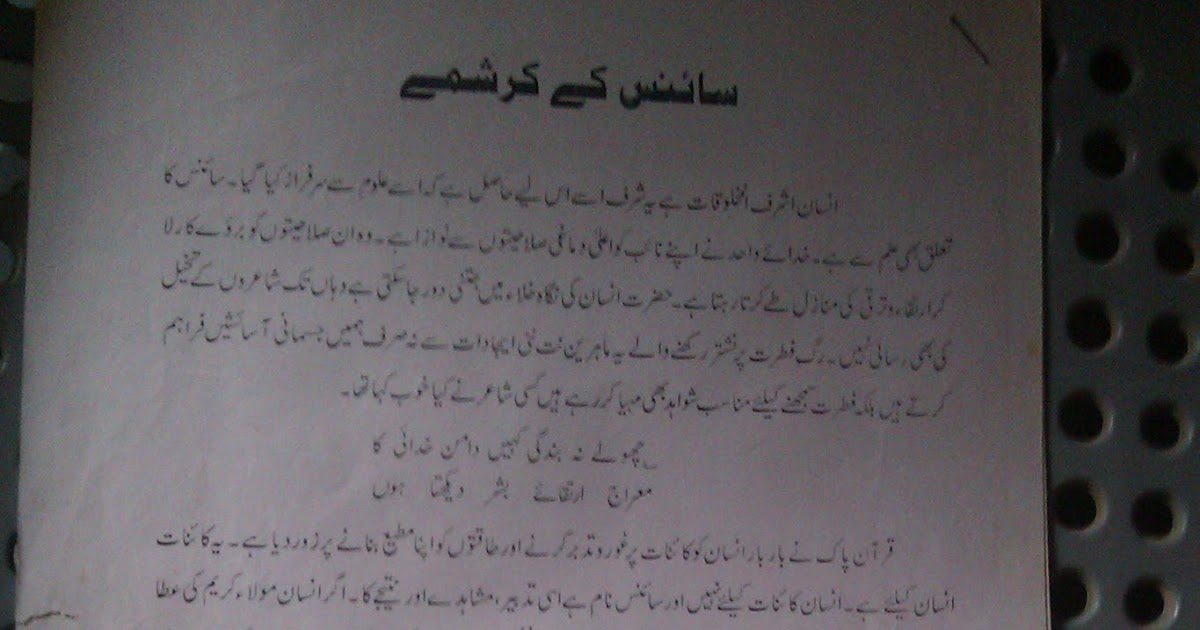 سائنس کے کرشمے
انسان اشرف المخلوقات ہے یہ شرف اسے اس لیے حاصل ہے کہ اسے علوم سے سرفراز کیا گیا۔ سائنس کا
تعلق بھی علم سے ہے۔ خدائے واحد نے اپنے نائب کو اعلیٰ دماغی صلاحیتوں سے نوازا ہے۔ وہ ان صلاحیتوں کو بروئے کار لا
کر ارتقاء و ترقی کی منازل طے کرتا رہتا ہے۔ حضرت انسان کی نگاہ خلاء میں جتنی دور جا سکتی ہے وہاں تک شاعروں کے تخیل
کی بھی رسائی نہیں۔ رگ فطرت پر نشتر رکھنے والے یہ ماہرین نت نئی ایجادات سے نہ صرف ہمیں جسمانی آسائشیں فراہم
کرتے ہیں بلکہ فطرت سمجھنے کیلئے مناسب شواہد بھی مہیا کر رہے ہیں کسی شاعر نے کیا خوب کہا تھا۔
؎ چھولے نہ بندگی کہیں دامن خدائی کا
معراج ارتقائے بشر دیکھتا ہوں
قرآن پاک نے بار بار انسان کو کائنات پر غور و تدبر کرنے اور طاقتوں کو اپنا مطیع بنانے پر زور دیا ہے۔ یہ کائنات
انسان کیلئے ہے۔ انسان کائنات کیلئے نہیں اور سائنس نام ہے اسی تدبیر، مشاہدے اور نتیجے کا۔ اگر انسان مولاء کریم کی عطا